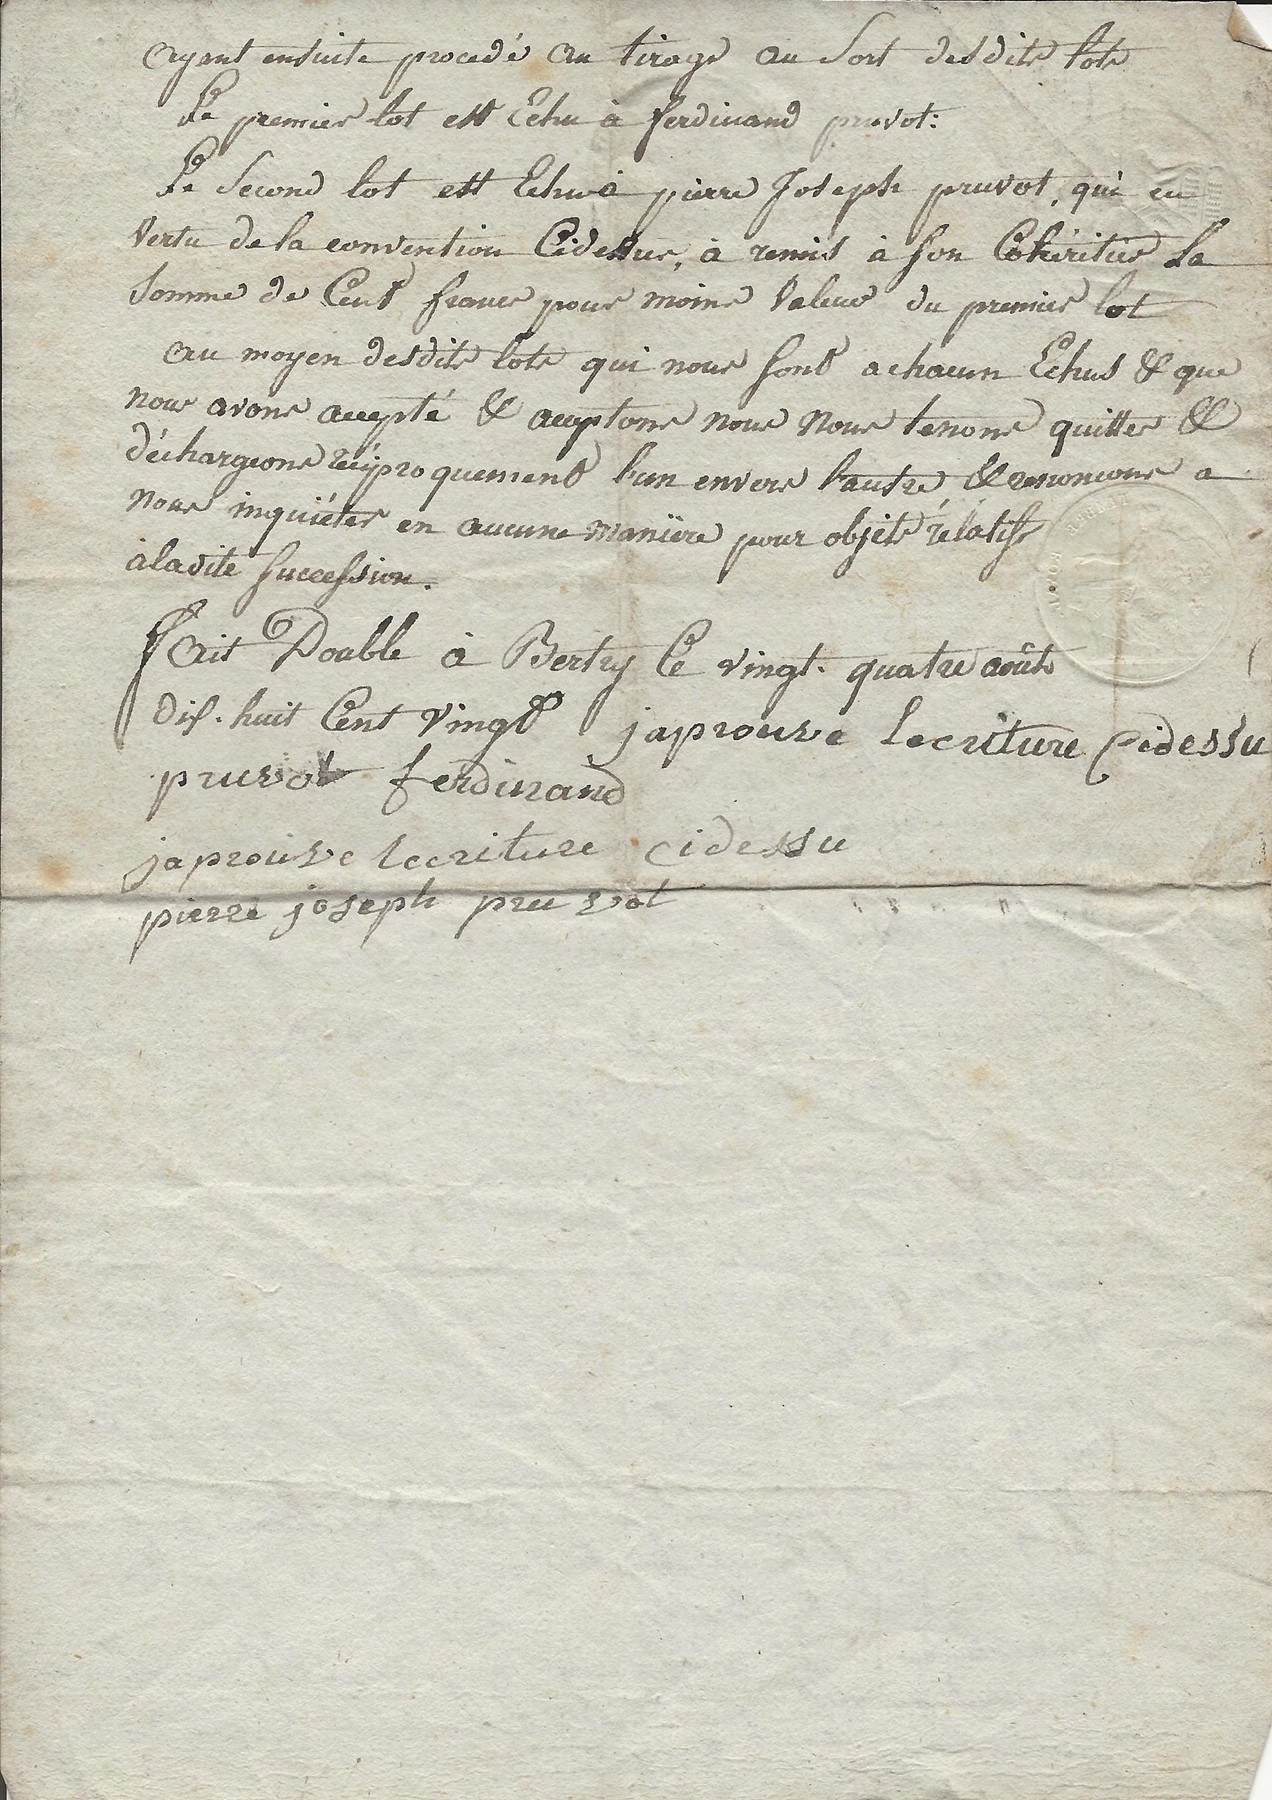 ayant ensuite procedé au tirage au Sort desdits lots
Le premier lot est Echu à ferdinand pruvot:
Le Second lot est Echu à pierre Joseph pruvot, qui en
Vertu de la convention Cidessus, à remis à son Cohéritier La
Somme de Cent francs pour moins Valeur du premier lot
au moyen desdits lots qui nous sont a chacun Echus & que
nous avons accepté & acceptons nous nous tenons quittes &
déchargeons réciproquement l'un envers l'autre, & renoncons a
nous inquiéter en aucune manière pour objets rélatifs
à ladite succession.
Fait Double à Bertry Le vingt. quatre août
dix. huit Cent Vingt japrouve lecriture cidessu
pruvot ferdinand
japrouve lecriture cidessu
pierre joseph pruvot